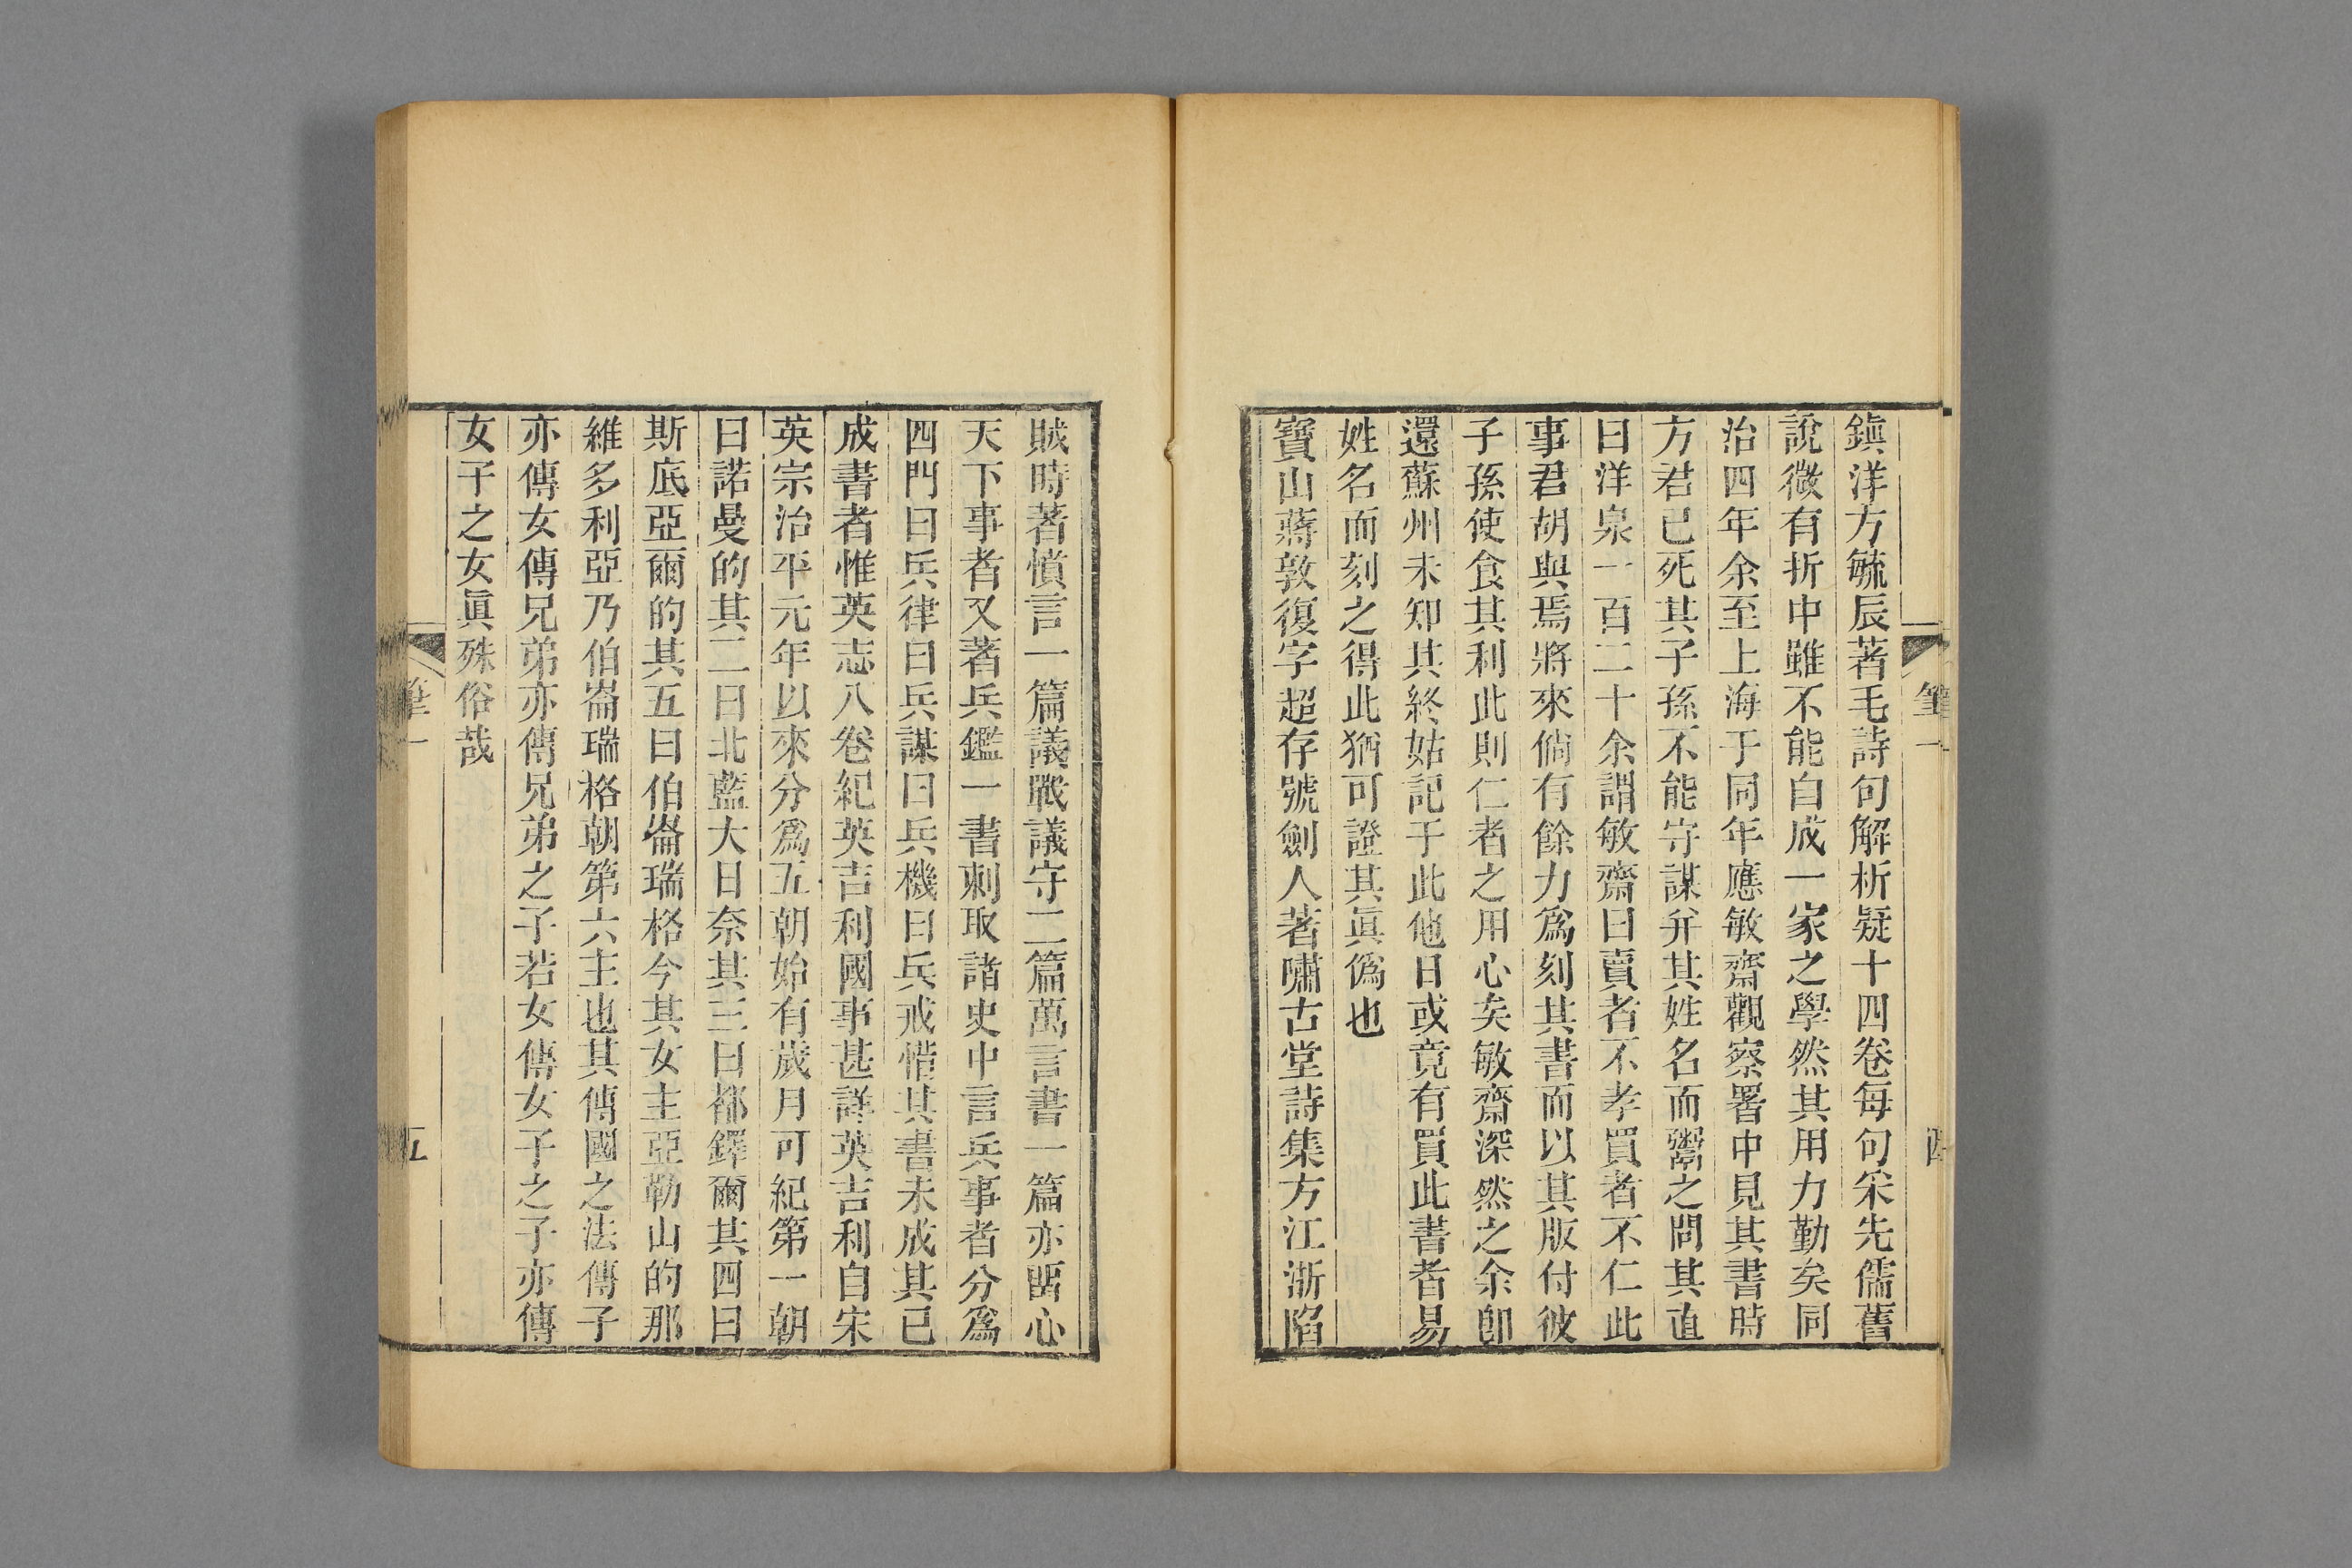 鎭洋方毓辰著毛詩句解析疑十四卷每句采先儒舊
說微有折中雖不能自成一家之學然其用力勤矣同
治四年余至上海于同年應敏齋觀察署中見其書時
方君已死其子孫不能守謀并其姓名而鬻之問其直
曰洋泉一百二十余謂敏齋曰賣者不孝買者不仁此
事君胡與焉將來倘有餘力爲刻其書而以其版付彼
子孫使食其利此則仁者之用心矣敏齋深然之余卽
還蘇州未知其終姑記于此他日或竟有買此書者易
姓名而刻之得此猶可證其眞僞也
寶山蔣敦復字超存號劍人著嘯古堂詩集方江浙陷
筆一
四
賊時著憤言一篇議戰議守二篇萬言書一篇亦畱心
天下事者又著兵鑑一書刺取諸史中言兵事者分爲
四門曰兵律曰兵謀曰兵機曰兵戒惜其書未成其已
成書者惟英志八卷紀英吉利國事甚詳英吉利自宋
英宗治平元年以來分爲五朝始有歲月可紀第一朝
曰諾曼的其二曰北藍大日奈其三曰都鐸爾其四曰
斯底亞爾的其五曰伯崙瑞格今其女主亞勒山的那
維多利亞乃伯崙瑞格朝第六主也其傳國之法傳子
亦傳女傳兄弟亦傳兄弟之子若女傳女子之子亦傳
女子之女眞殊俗哉
筆一
五